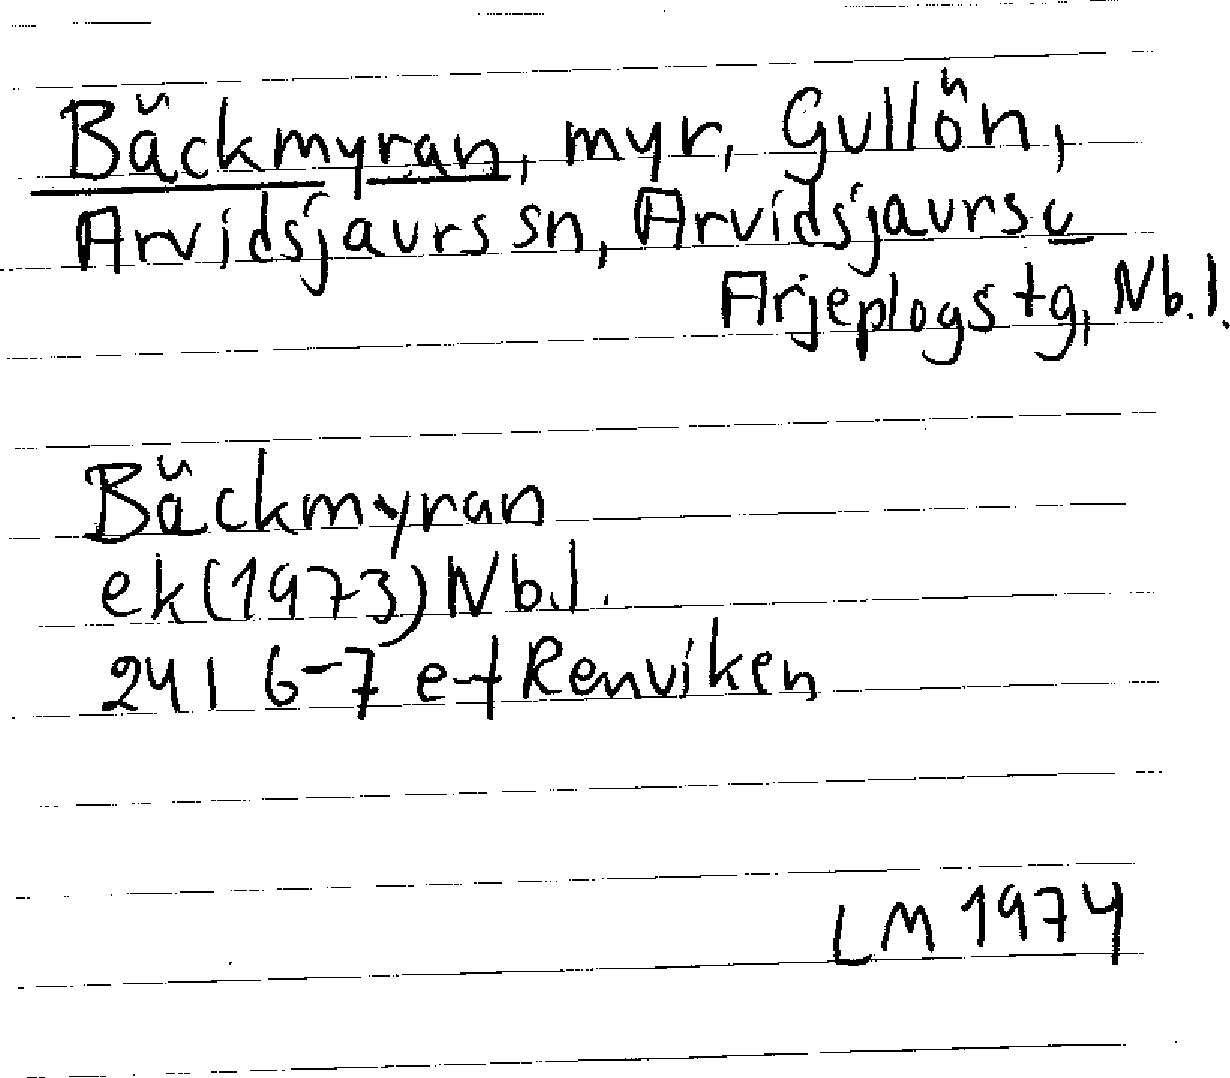 Bäckmyran, myr, Gullön,
Arvidsjaurs sn, Arvidsjaurs o
Arjeplogs tg, Nb.l.
Bäckmyran
ek (1973) Nb.l.
24 I 6-7 e-f Renviken
LM 1974